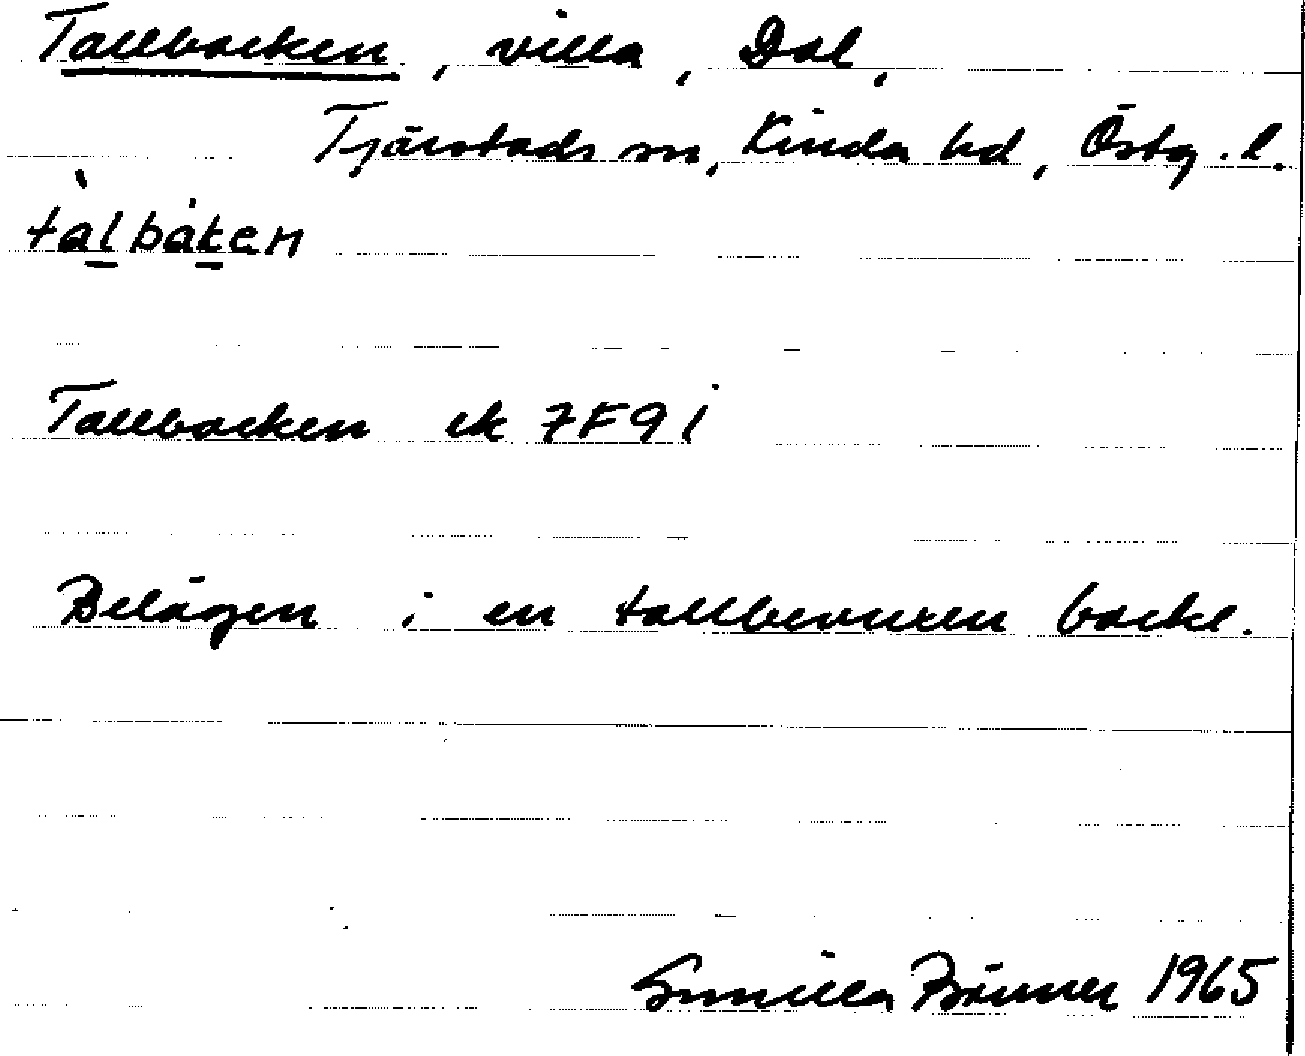 Tallbacken, villa, Dal,
Tjärstads sn, Kinda hd, Östg. l.
tàlbáken
Tallbacken ek 7F9i
Belägen i en tallbevuxen backe.
Gunilla 1965